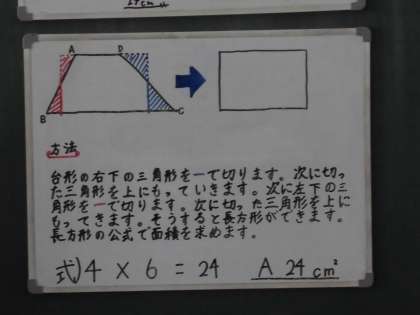 A D
B C
方法
台形の右下の三角形を一で切ります。次に切っ
た三角形を上にもっていきます。次に左下の三
角形を一で切ります。次に切った三角形を上に
もってきます。そうすると長方形ができます。
長方形の公式で面積を求めます。
式)4 × 6 = 24 A 24cm²